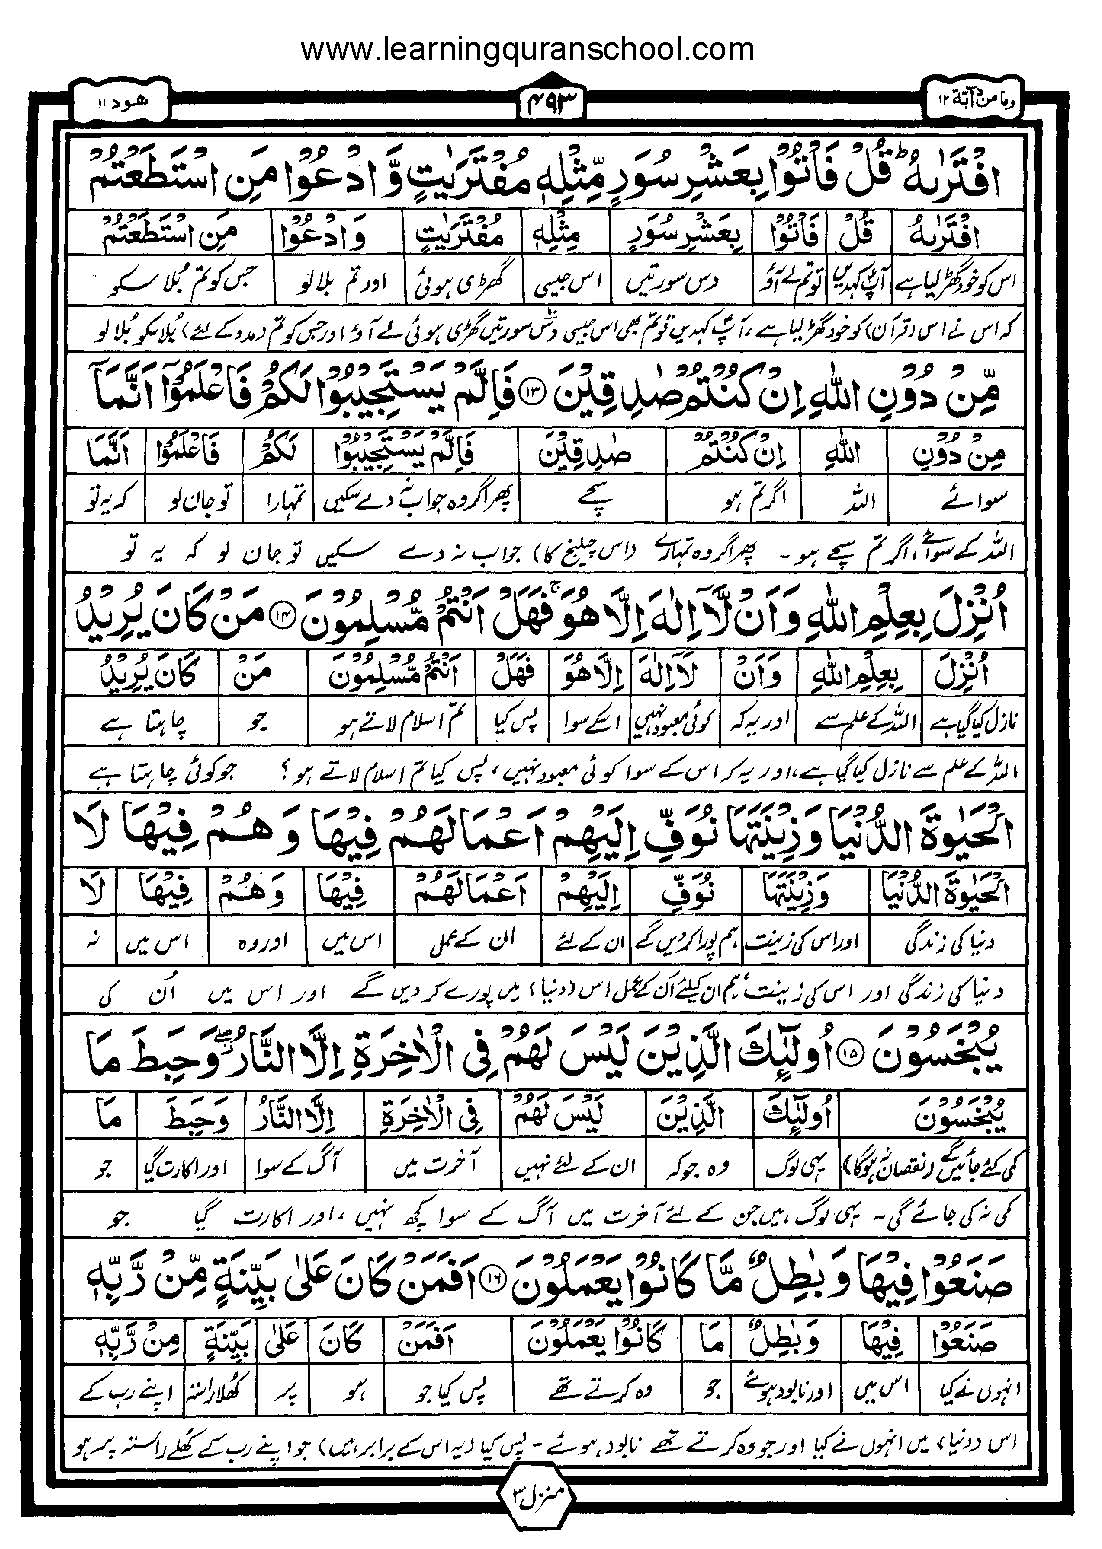 www.learningquranschool.com
وما من دآبة ۱۲
۴۹۳
هود ۱۱
افْتَرٰىهُ ؕ قُلْ فَاْتُوْا بِعَشْرِ سُوَرٍ مِّثْلِهٖ مُفْتَرَيٰتٍ وَّ ادْعُوْا مَنِ اسْتَطَعْتُمْ
افْتَرٰىهُ قُلْ فَاْتُوْا بِعَشْرِ سُوَرٍ مِثْلِهٖ مُفْتَرَيٰتٍ وَ ادْعُوْا مَنِ اسْتَطَعْتُمْ
اس کو خود گھڑ لیا ہے آپؐ کہدیں تو تم لے آؤ دس سورتیں اس جیسی گھڑی ہوئی اور تم بلا لو جس کو تم بُلا سکو
کہ اس نے اس (قرآن) کو خود گھڑ لیا ہے، آپؐ کہدیں تو تم بھی اس جیسی دس سورتیں گھڑی ہوئی لے آؤ اور جس کو تم (مدد کے لئے) بُلا سکو بُلا لو
مِّنْ دُوْنِ اللّٰهِ اِنْ كُنْتُمْ صٰدِقِيْنَ ۱۳ فَاِلَّمْ يَسْتَجِيْبُوْا لَكُمْ فَاعْلَمُوْۤا اَنَّمَاۤ
مِنْ دُوْنِ اللّٰهِ اِنْ كُنْتُمْ صٰدِقِيْنَ فَاِلَّمْ يَسْتَجِيْبُوْا لَكُمْ فَاعْلَمُوْۤا اَنَّمَا
سوائے اللہ اگر تم ہو سچے پھر اگر وہ جواب نہ دے سکیں تمہارا تو جان لو کہ یہ تو
اللہ کے سوائے، اگر تم سچے ہو۔ پھر اگر وہ تمہارے (اس چیلنج کا) جواب نہ دے سکیں تو جان لو کہ یہ تو
اُنْزِلَ بِعِلْمِ اللّٰهِ وَ اَنْ لَّاۤ اِلٰهَ اِلَّا هُوَ ۚ فَهَلْ اَنْتُمْ مُّسْلِمُوْنَ ۱۴ مَنْ كَانَ يُرِيْدُ
اُنْزِلَ بِعِلْمِ اللّٰهِ وَ اَنْ لَاۤ اِلٰهَ اِلَّا هُوَ فَهَلْ اَنْتُمْ مُّسْلِمُوْنَ مَنْ كَانَ يُرِيْدُ
نازل کیا گیا ہے اللہ کے علم سے اور یہ کہ کوئی معبود نہیں اسکے سوا پس کیا تم اسلام لاتے ہو جو چاہتا ہے
اللہ کے علم سے نازل کیا گیا ہے، اور یہ کہ اس کے سوا کوئی معبود نہیں، پس کیا تم اسلام لاتے ہو؟ جو کوئی چاہتا ہے
الْحَيٰوةَ الدُّنْيَا وَ زِيْنَتَهَا نُوَفِّ اِلَيْهِمْ اَعْمَالَهُمْ فِيْهَا وَ هُمْ فِيْهَا لَا
الْحَيٰوةَ الدُّنْيَا وَ زِيْنَتَهَا نُوَفِّ اِلَيْهِمْ اَعْمَالَهُمْ فِيْهَا وَ هُمْ فِيْهَا لَا
دنیا کی زندگی اور اس کی زینت ہم پورا کر دیں گے ان کے لئے ان کے عمل اس میں اور وہ اس میں نہ
دنیا کی زندگی اور اس کی زینت، ہم ان کیلئے ان کے عمل اس (دنیا) میں پورے کر دیں گے اور اس میں اُن کی
يُبْخَسُوْنَ ۱۵ اُولٰٓئِكَ الَّذِيْنَ لَيْسَ لَهُمْ فِى الْاٰخِرَةِ اِلَّا النَّارُ ۖ وَ حَبِطَ مَا
يُبْخَسُوْنَ اُولٰٓئِكَ الَّذِيْنَ لَيْسَ لَهُمْ فِى الْاٰخِرَةِ اِلَّا النَّارُ وَ حَبِطَ مَا
کمی کئے جائیں گے (نقصان نہ ہوگا) یہی لوگ وہ جو کہ ان کے لئے نہیں آخرت میں آگ کے سوا اور اکارت گیا جو
کمی نہ کی جائے گی۔ یہی لوگ ہیں جن کے لئے آخرت میں آگ کے سوا کچھ نہیں، اور اکارت گیا جو
صَنَعُوْا فِيْهَا وَ بٰطِلٌ مَّا كَانُوْا يَعْمَلُوْنَ ۱۶ اَفَمَنْ كَانَ عَلٰى بَيِّنَةٍ مِّنْ رَّبِّهٖ
صَنَعُوْا فِيْهَا وَ بٰطِلٌ مَا كَانُوْا يَعْمَلُوْنَ اَفَمَنْ كَانَ عَلٰى بَيِّنَةٍ مِنْ رَّبِّهٖ
انہوں نے کیا اس میں اور نابود ہوئے جو وہ کرتے تھے پس کیا جو ہو پر کھلا راستہ اپنے رب کے
اس (دنیا) میں انہوں نے کیا اور جو وہ کرتے تھے نابود ہوئے۔ پس کیا (یہ اس کے برابر ہیں) جو اپنے رب کے کُھلے راستہ پر ہو
منزل ۳